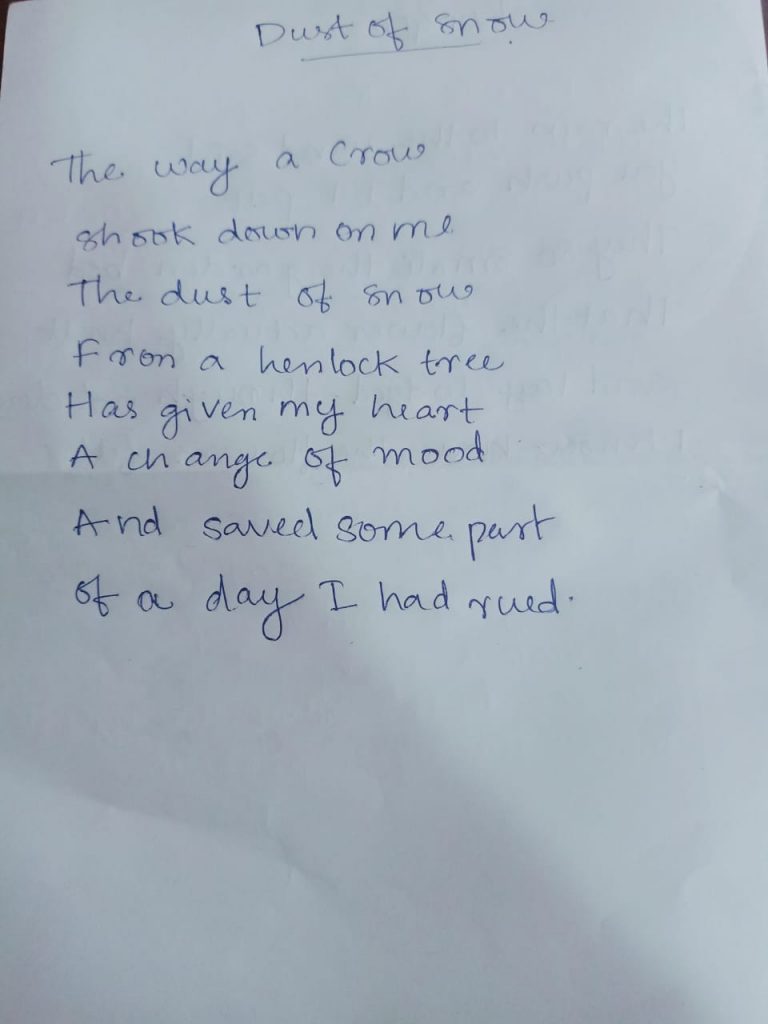 Dust of snow
The way a Crow
shook down on me
The dust of snow
Fron a henlock tree
Has given my heart
A change of mood
And saved some part
of a day I had rued.